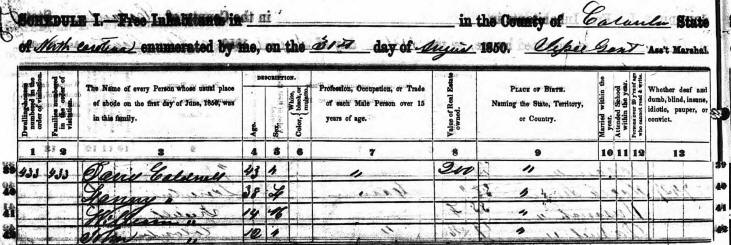 SCHEDULE I.—Free Inhabitants in in the County of State
of North Carolina enumerated by me, on the 31st day of August 1850. Ass't Marshal.
Dwelling-houses numbered in the order of visitation.
Families numbered in the order of visitation.
The Name of every Person whose usual place of abode on the first day of June, 1850, was in this family.
DESCRIPTION.
Age.
Sex.
Color, { White, black, or mulatto.
Profession, Occupation, or Trade of each Male Person over 15 years of age.
Value of Real Estate owned.
PLACE OF BIRTH. Naming the State, Territory, or Country.
Married within the year.
Attended School within the year.
Persons over 20 y'rs of age who cannot read & write.
Whether deaf and dumb, blind, insane, idiotic, pauper, or convict.
1 2 3 4 5 6 7 8 9 10 11 12 13
39 433 433 David Caldwell 43 " " 200 " 39
Nanny " 38 f "
41 14 M " 41
John " 12 " "